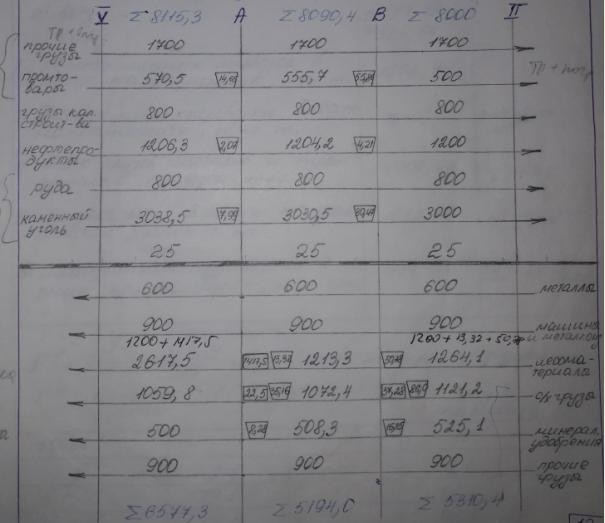 V Σ 8115,3 А Σ 8090,4 В Σ 8000 II
прочие грузы 1700 1700 1700
ТР + погр
промто-
вары 570,5 555,7 500
грузы кап.
строит-ва 800 800 800
нефтепро-
дукты 1206,3 2,07 1204,2 4,21 1200
руда 800 800 800
каменный
уголь 3038,5 3030,5 3000
25 25 25
600 600 600 металлы
900 900 900 машины
и металлоиз
1200 + 1417,5 1200 + 13,32 + 50,
2617,5 1417,5 13,32 1213,3 1264,1 лесома-
териалы
1059,8 22,5 1072,4 1121,2 с/х грузы
500 8,28 508,3 525,1 минерал.
удобрения
900 900 900 прочие
грузы
Σ 6577,3 Σ 5194,0 Σ 5310,4